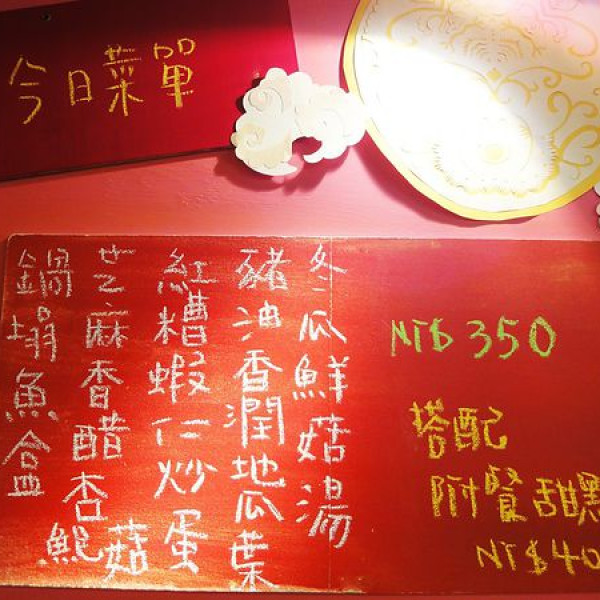 今日菜單
冬瓜鮮菇湯
豬油香潤地瓜葉
紅糟蝦仁炒蛋
芝麻香醋杏鮑菇
鍋塌魚盒
NT$350
搭配
附餐甜點
NT$40